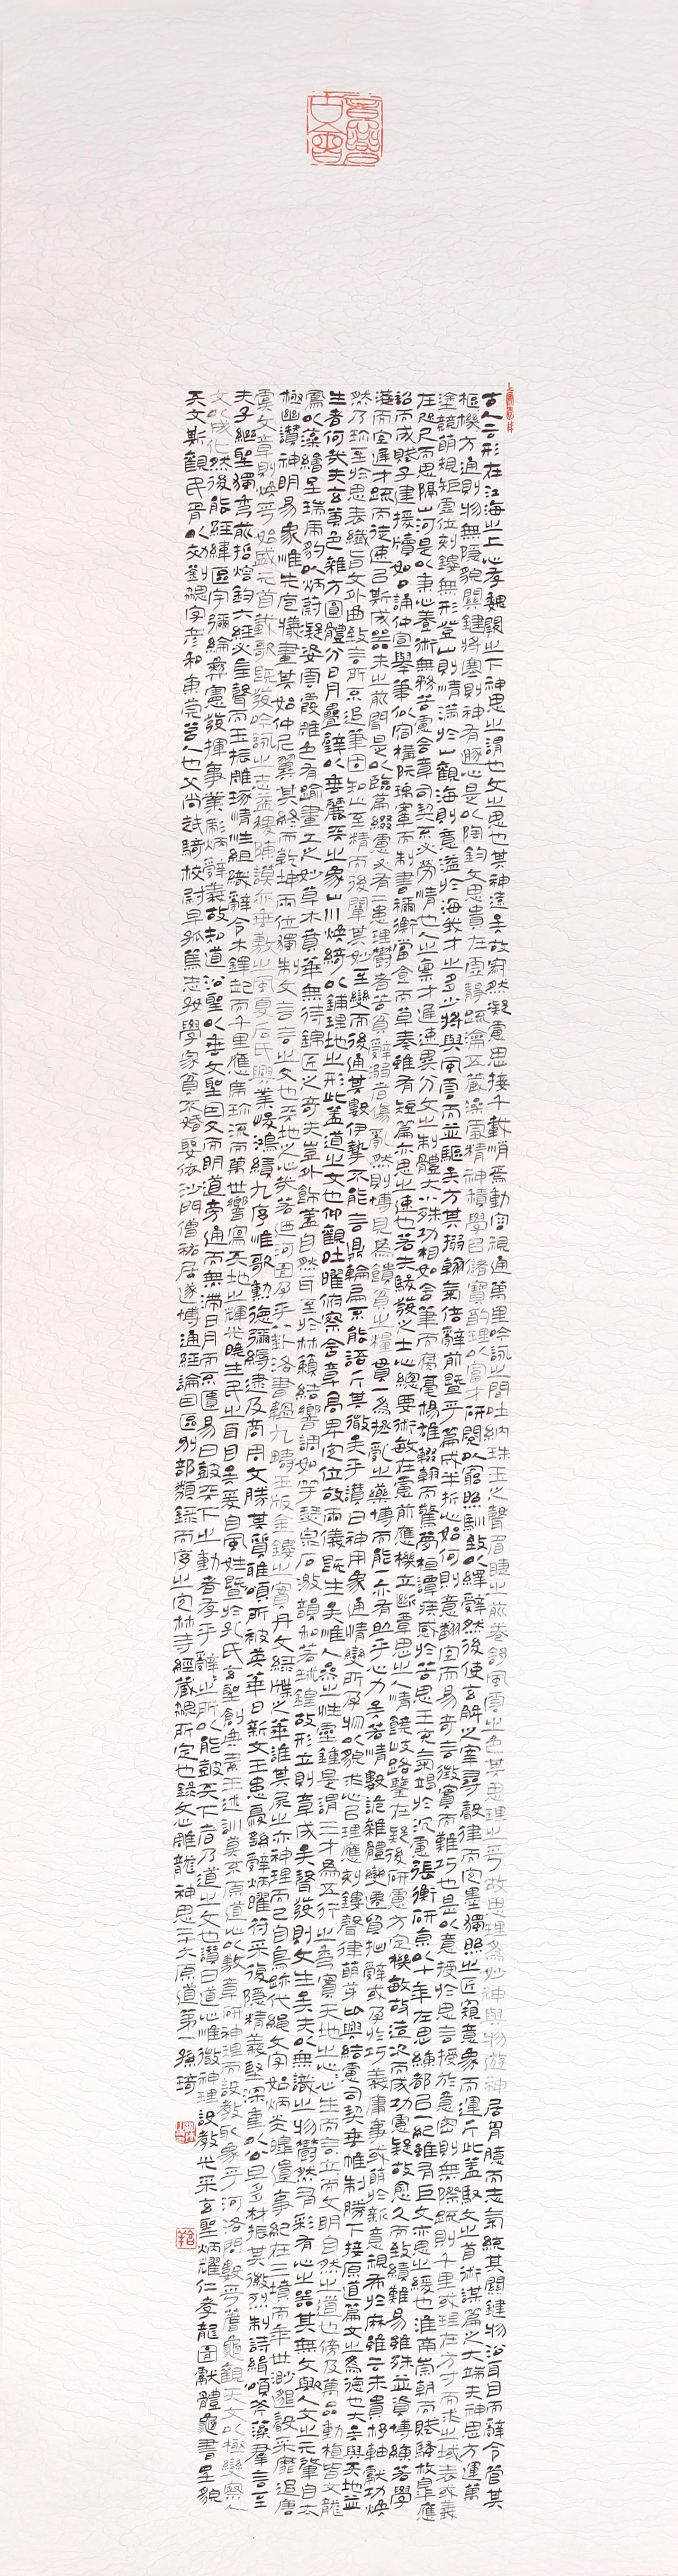 古人云形在江海之上心存魏闕之下神思之謂也文之思也其神遠矣故寂然凝慮思接千載悄焉動容視通萬里吟詠之間吐納珠玉之聲眉睫之前卷舒風雲之色其思理之乎故思理為妙神與物遊神居胷臆而志氣統其關鍵物沿耳目而辭令管其
樞機方通則物無隱貌關鍵將塞則神有遯心是以陶鈞文思貴在虛靜疏瀹五藏澡雪精神積學以儲寶酌理以富才研閱以窮照馴致以繹辭然後使玄解之宰尋聲律而定墨獨照之匠窺意象而運斤此蓋馭文之首術謀篇之大端夫神思方運萬
塗競萌規矩虛位刻鏤無形登山則情滿於山觀海則意溢於海我才之多少將與風雲而並驅矣方其搦翰氣倍辭前暨乎篇成半折心始何則意翻空而易奇言徵實而難巧也是以意授於思言授於意密則無際疏則千里或理在方寸而求之域表或義
在咫尺而思隔山河是以秉心養術無務苦慮含章司契不必勞情也人之稟才遲速異分文之制體大小殊功相如含筆而腐毫楊雄輟翰而驚夢桓譚疾感於苦思王充氣竭於沉慮張衡研京以十年左思練都以一紀雖有巨文亦思之緩也淮南崇朝而賦騷枚皋應
詔而成賦子建援牘如口誦仲宣舉筆似宿構阮瑀據案而制書禰衡當食而草奏雖有短篇亦思之速也若夫駿發之士心總要術敏在慮前應機立斷覃思之人情饒岐路鑒在疑後研慮方定機敏故造次而成功慮疑故愈久而致績難易雖殊並資博練若學
淺而空遲才疏而徒速以斯成器未之前聞是以臨篇綴慮必有二患理鬱者苦貧辭溺者傷亂然則博見為饋貧之糧貫一為拯亂之藥博而能一亦有助乎心力矣若情數詭雜體變遷貿拙辭或孕於巧義庸事或萌於新意視布於麻雖云未貴杼軸獻功煥
然乃珍至於思表纖旨文外曲致言所不追筆固知止至精而後闡其妙至變而後通其數伊摯不能言鼎輪扁不能語斤其微矣乎讚曰神用象通情變所孕物以貌求心以理應刻鏤聲律萌芽比興結慮司契垂帷制勝下接原道篇文之為德也大矣與天地並
生者何哉夫玄黃色雜方圓體分日月疊璧以垂麗天之象山川煥綺以鋪理地之形此蓋道之文也仰觀吐曜俯察含章高卑定位故兩儀既生矣惟人參之性靈鍾是謂三才為五行之秀實天地之心心生而言立而文明自然之道也傍及萬品動植皆文龍
鳳以藻繪呈瑞虎豹以炳蔚凝姿雲霞雕色有踰畫工之妙草木賁華無待錦匠之奇夫豈外飾蓋自然耳至於林籟結響調如竽瑟泉石激韻和若球鍠故形立則章成矣聲發則文生矣夫以無識之物鬱然有彩有心之器其無文歟人文之元肇自太
極幽讚神明易象惟先庖犧畫其始仲尼翼其終而乾坤兩位獨制文言言之文也天地之心哉若迺河圖孕乎八卦洛書韞九疇玉版金鏤之實丹文綠牒之華誰其尸之亦神理而已自鳥跡代繩文字始炳炎皞遺事紀在三墳而年世渺邈聲采靡追唐
虞文章則煥乎始盛元首載歌既發吟詠之志益稷陳謨亦垂敷之風夏后氏興業峻鴻績九序惟歌勳德彌縟逮及商周文勝其質雅頌所被英華日新文王患憂繇辭炳曜符采復隱精義堅深重以公旦多材振其徽烈制詩緝頌斧藻羣言至
夫子繼聖獨秀前哲熔鈞六經必金聲而玉振雕琢情性組織辭令木鐸起而千里應席珍流而萬世響寫天地之輝光曉生民之耳目矣爰自風姓暨於孔氏玄聖創典素王述訓莫不原道心以敷章研神理而設教取象乎河洛問數乎蓍龜觀天文以極變察人
文以成化然後能經緯區宇彌綸彝憲發揮事業彪炳辭義故知道沿聖以垂文聖因文而明道旁通而無滯日月而不匱易曰鼓天下之動者存乎辭辭之所以能鼓天下者乃道之文也讚曰道心惟微神理設教光采玄聖炳耀仁孝龍圖獻體龜書呈貌
天文斯觀民胥以效劉勰字彥和東莞莒人也父尚越騎校尉早孤篤志好學家貧不婚娶依沙門僧祐居遂博通經論因區別部類錄而序之定林寺經藏勰所定也錄文心雕龍神思二十六原道第一孫琦